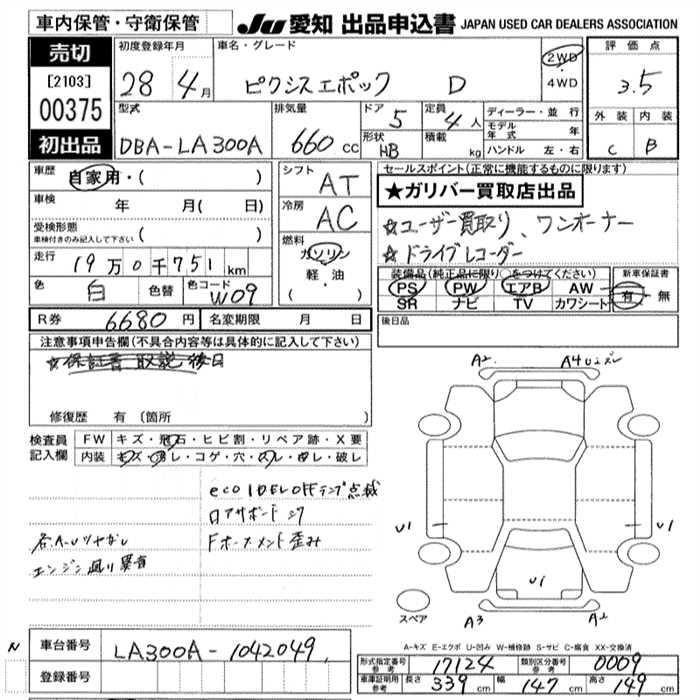 車内保管・守衛保管
JU 愛知 出品申込書 JAPAN USED CAR DEALERS ASSOCIATION
売切
[2103]
00375
初出品
初度登録年月
28年4月
車名・グレード
ピクシスエポック D
2WD
4WD
評価点
3.5
外装 内装
C B
型式
DBA-LA300A
排気量
660cc
ドア
5
定員
4人
形状
HB
積載
kg
ディーラー・並行
モデル年式 年
ハンドル 左・右
車歴
自家用・( )
車検 年 月( 日)
受検形態
車検付きのみ記入して下さい ( )
走行
19万0千751km
色
白
色替
色コード
W09
シフト
AT
冷房
AC
燃料
ガソリン
軽・油
( )
セールスポイント(正常に機能するものに限ります)
★ガリバー買取店出品
☆ユーザー買取り、ワンオーナー
☆ドライブレコーダー
装備品(純正品に限り○をつけてください)
PS PW エアB AW
SR ナビ TV カワシート
新車保証書
有・無
R券 6680円
名変期限 月 日
後日品
注意事項申告欄(不具合内容等は具体的に記入して下さい)
☆保証書 取説 後日
修復歴 有 (箇所 )
検査員記入欄
FW キズ・飛石・ヒビ割・リペア跡・X要
内装 キズ・汚レ・コゲ・穴・スレ・凹レ・破レ
eco IDELOFFランプ点滅
エンジン廻り異音
A2 A4
U1 U1
U1
A3 A2
スペア
A-キズ E-エクボ U-凹み W-補修跡 S-サビ C-腐食 XX-交換済
N
車台番号 LA300A-1042049
登録番号
形式指定番号 参考 17124
類別区分番号 参考 0009
車庫証明用 参考 長さ 339cm 幅 147cm 高さ 149cm